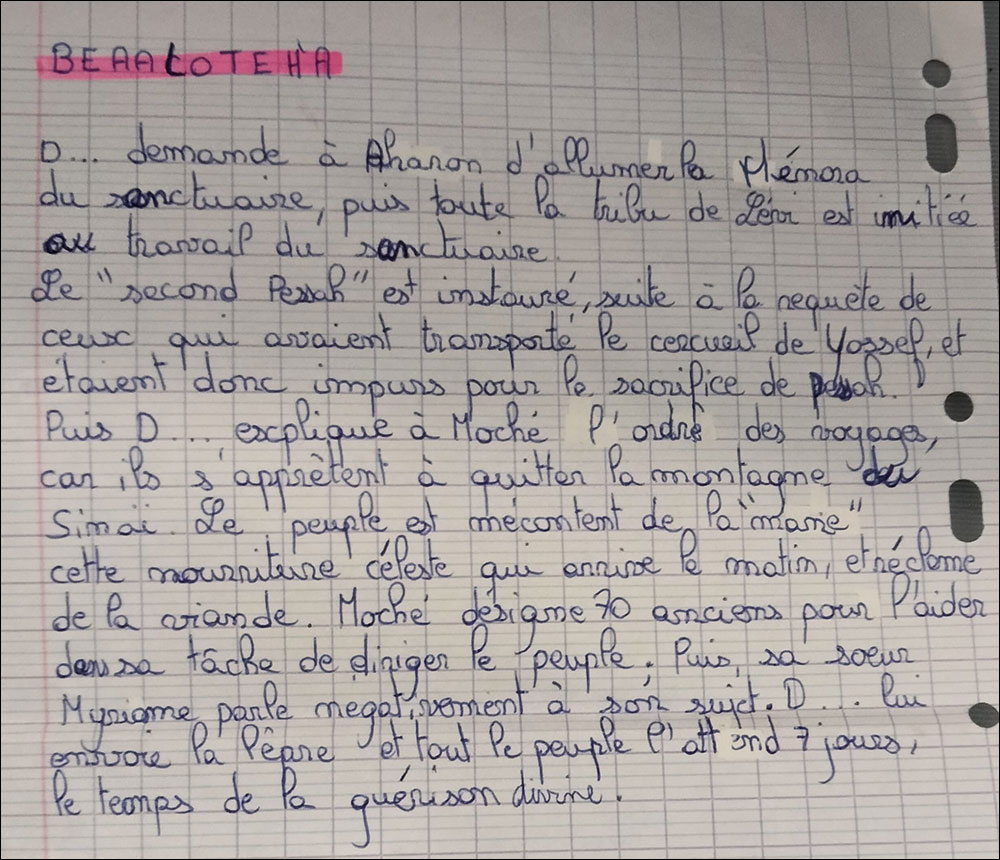 BEAALOTEH'A
D... demande à Aharon d'allumer la Ménora
du sanctuaire, puis toute la tribu de Lévi est initiée
au travail du sanctuaire.
Le "second Pessah" est instauré, suite à la requête de
ceux qui avaient transporté le cercueil de Yossef, et
étaient donc impurs pour le sacrifice de pessah.
Puis D... explique à Moché l'ordre des voyages,
car ils s'apprêtent à quitter la montagne du
Sinaï. Le peuple est mécontent de la "manne"
cette nourriture céleste qui arrive le matin, et réclame
de la viande. Moché désigne 70 anciens pour l'aider
dans sa tâche de diriger le peuple. Puis, sa soeur
Myriame parle négativement à son sujet. D... lui
envoie la lèpre et tout le peuple l'attend 7 jours,
le temps de la guérison divine.